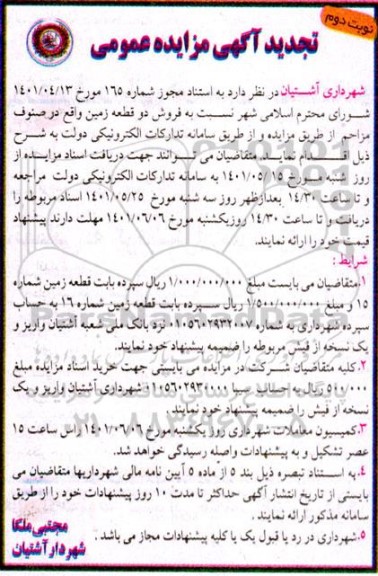 نوبت دوم
تجدید آگهی مزایده عمومی
شهرداری آشتیان در نظر دارد به استناد مجوز شماره ۱۶۵ مورخ ۱۴۰۱/۰۴/۱۳
شورای محترم اسلامی شهر نسبت به فروش دو قطعه زمین واقع در صنوف
مزاحم از طریق مزایده و از طریق سامانه تدارکات الکترونیکی دولت به شرح
ذیل اقدام نمایند. متقاضیان می توانند جهت دریافت اسناد مزایده از
روز شنبه مورخ ۱۴۰۱/۰۵/۱۵ به سامانه تدارکات الکترونیکی دولت مراجعه
و تا ساعت ۱۴/۳۰ بعدازظهر روز سه شنبه مورخ ۱۴۰۱/۰۵/۲۵ اسناد مربوطه را
دریافت و تا ساعت ۱۴/۳۰ روزیکشنبه مورخ ۱۴۰۱/۰۶/۰۶ مهلت دارند پیشنهاد
قیمت خود را ارائه نمایند.
شرایط:
۱-متقاضیان می بایست مبلغ ۱/۰۰۰/۰۰۰/۰۰۰ ریال سپرده بابت قطعه زمین شماره
۱۵ و مبلغ ۱/۵۰۰/۰۰۰/۰۰۰ ریال سپرده بابت قطعه زمین شماره ۱۶ به حساب
سپرده شهرداری به شماره ۰۱۰۵۶۰۲۹۳۲۰۰۷ نزد بانک ملی شعبه آشتیان واریز و
یک نسخه از فیش مربوطه را ضمیمه پیشنهاد خود نمایند.
۲.کلیه متقاضیان شرکت در مزایده می بایستی جهت خرید اسناد مزایده مبلغ
۵۰۰/۰۰۰ ریال به حساب سیبا ۰۱۰۵۶۰۲۹۳۰۰۰۰ شهرداری آشتیان واریز و یک
نسخه از فیش را ضمیمه پیشنهاد خود نمایند.
۳.کمیسیون معاملات شهرداری روز یکشنبه مورخ ۱۴۰۱/۰۶/۰۶ راس ساعت ۱۵
عصر تشکیل و به پیشنهادات واصله رسیدگی خواهد شد.
۴.به استناد تبصره ذیل بند ۵ از ماده ۵ آیین نامه مالی شهرداریها متقاضیان می
بایستی از تاریخ انتشار آگهی حداکثر تا مدت ۱۰ روز پیشنهادات خود را از طریق
سامانه مذکور ارائه نمایند.
۵.شهرداری در رد یا قبول یک یا کلیه پیشنهادات مجاز می باشد.
مجتبی ملگا
شهردار آشتیان
ParsNamadData